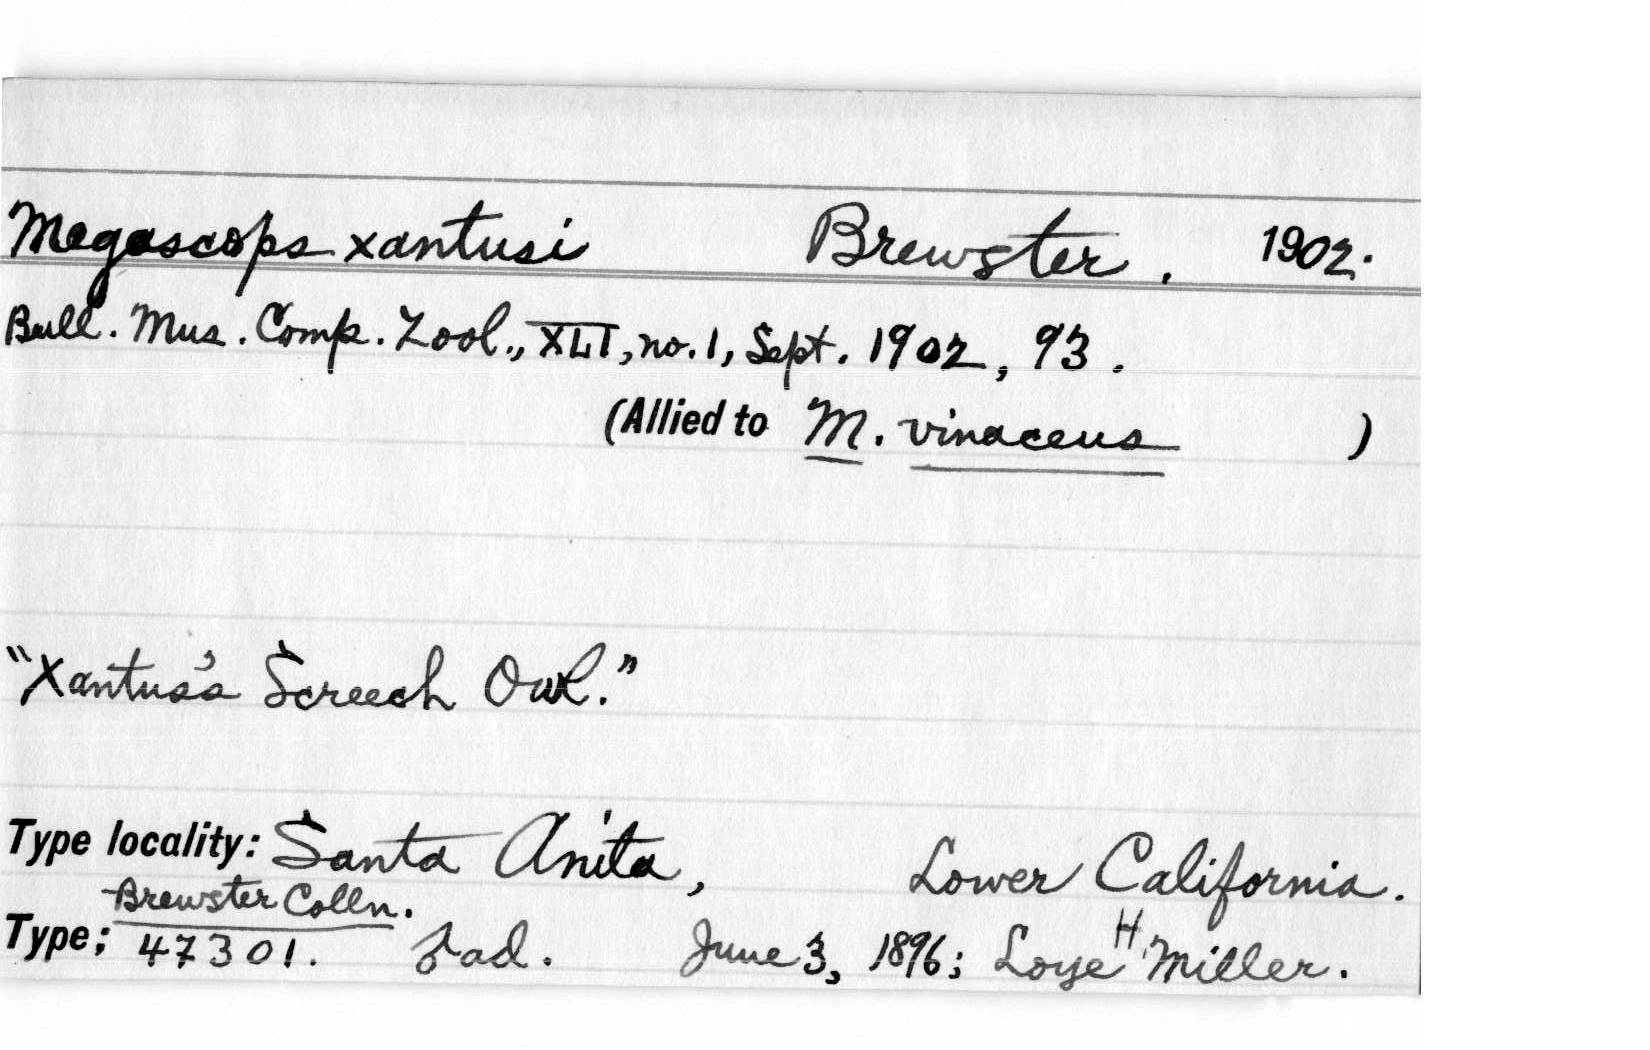 Megascops xantusi Brewster, 1902.
Bull. Mus. Comp. Zool., XLI, no. 1, Sept. 1902, 93.
(Allied to M. vinaceus )
"Xantus's Screech Owl."
Type locality: Santa Anita, Lower California.
Brewster Colln.
Type: 47301. ad. June 3, 1896; Loye H. Miller.